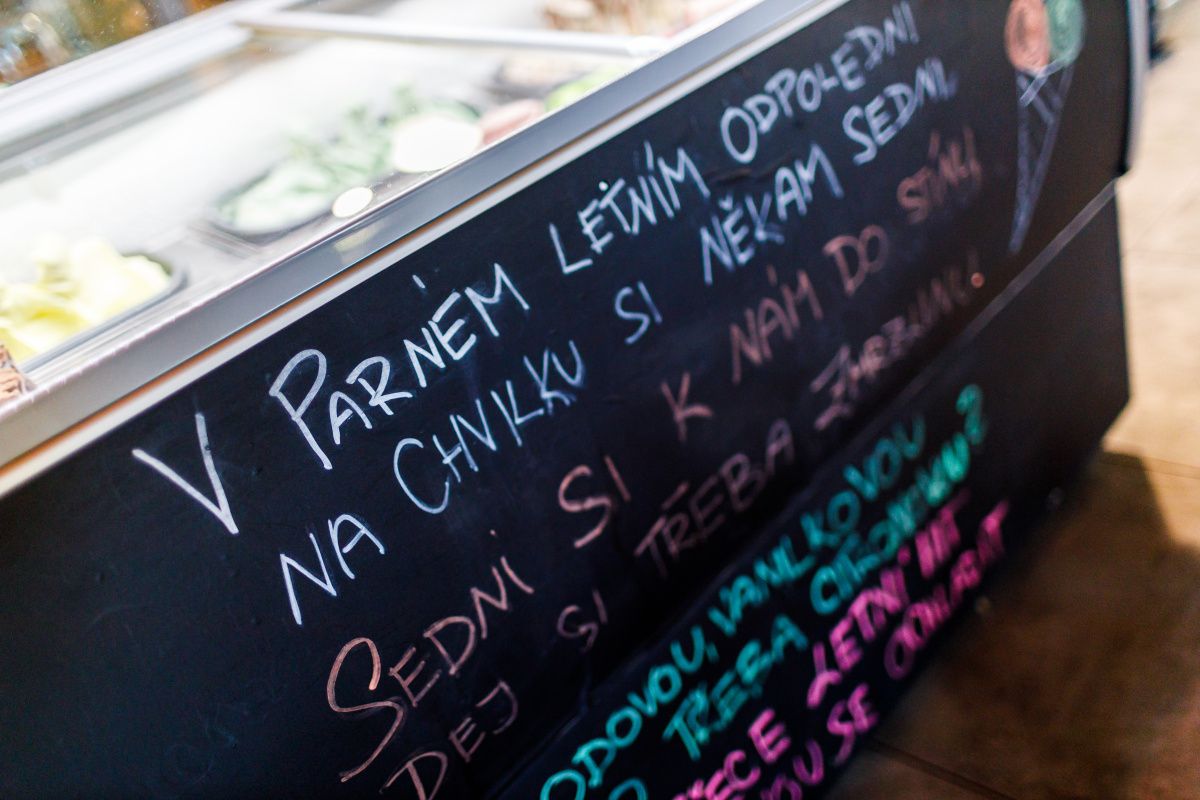 V PARNÉM LETNÍM ODPOLEDNI
NA CHVILKU SI NĚKAM SEDNI.
SEDNI SI K NÁM DO STÍNU
DEJ SI TŘEBA ZMRZLINU.
ODOVOU, VANILKOVOU
TŘEBA CITRONOVOU?
LETNÍ HIT
SE